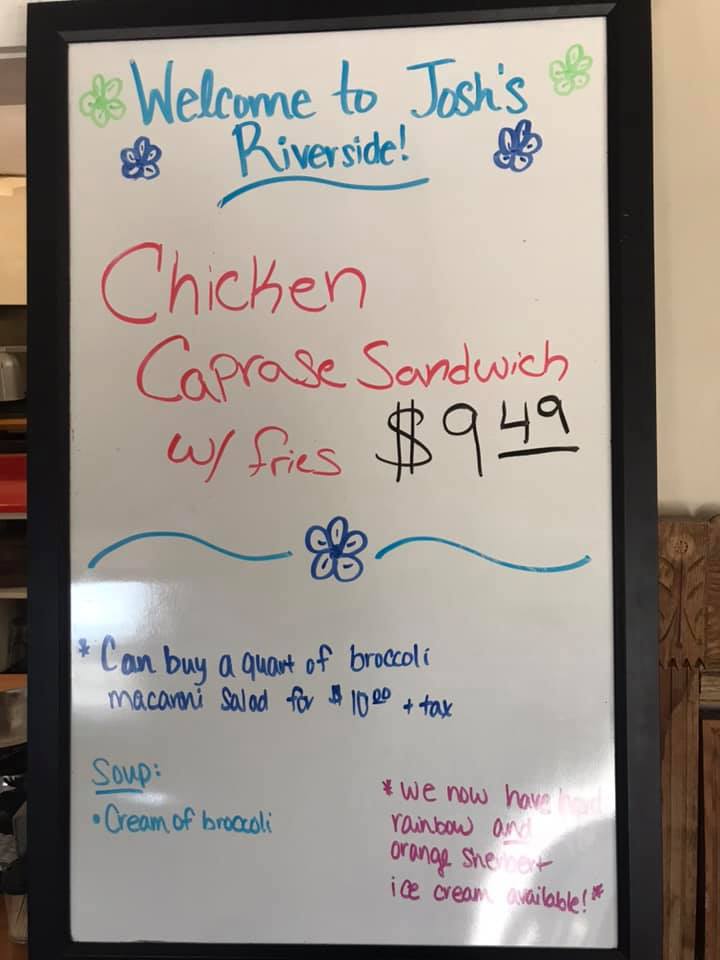 Welcome to Josh's
Riverside!
Chicken
Caprase Sandwich
w/ fries $9 49
*Can buy a quart of broccoli
macaroni Salad for $10.00 + tax
Soup:
• Cream of broccoli
*we now have hard
rainbow and
orange Sherbert
ice cream available!*